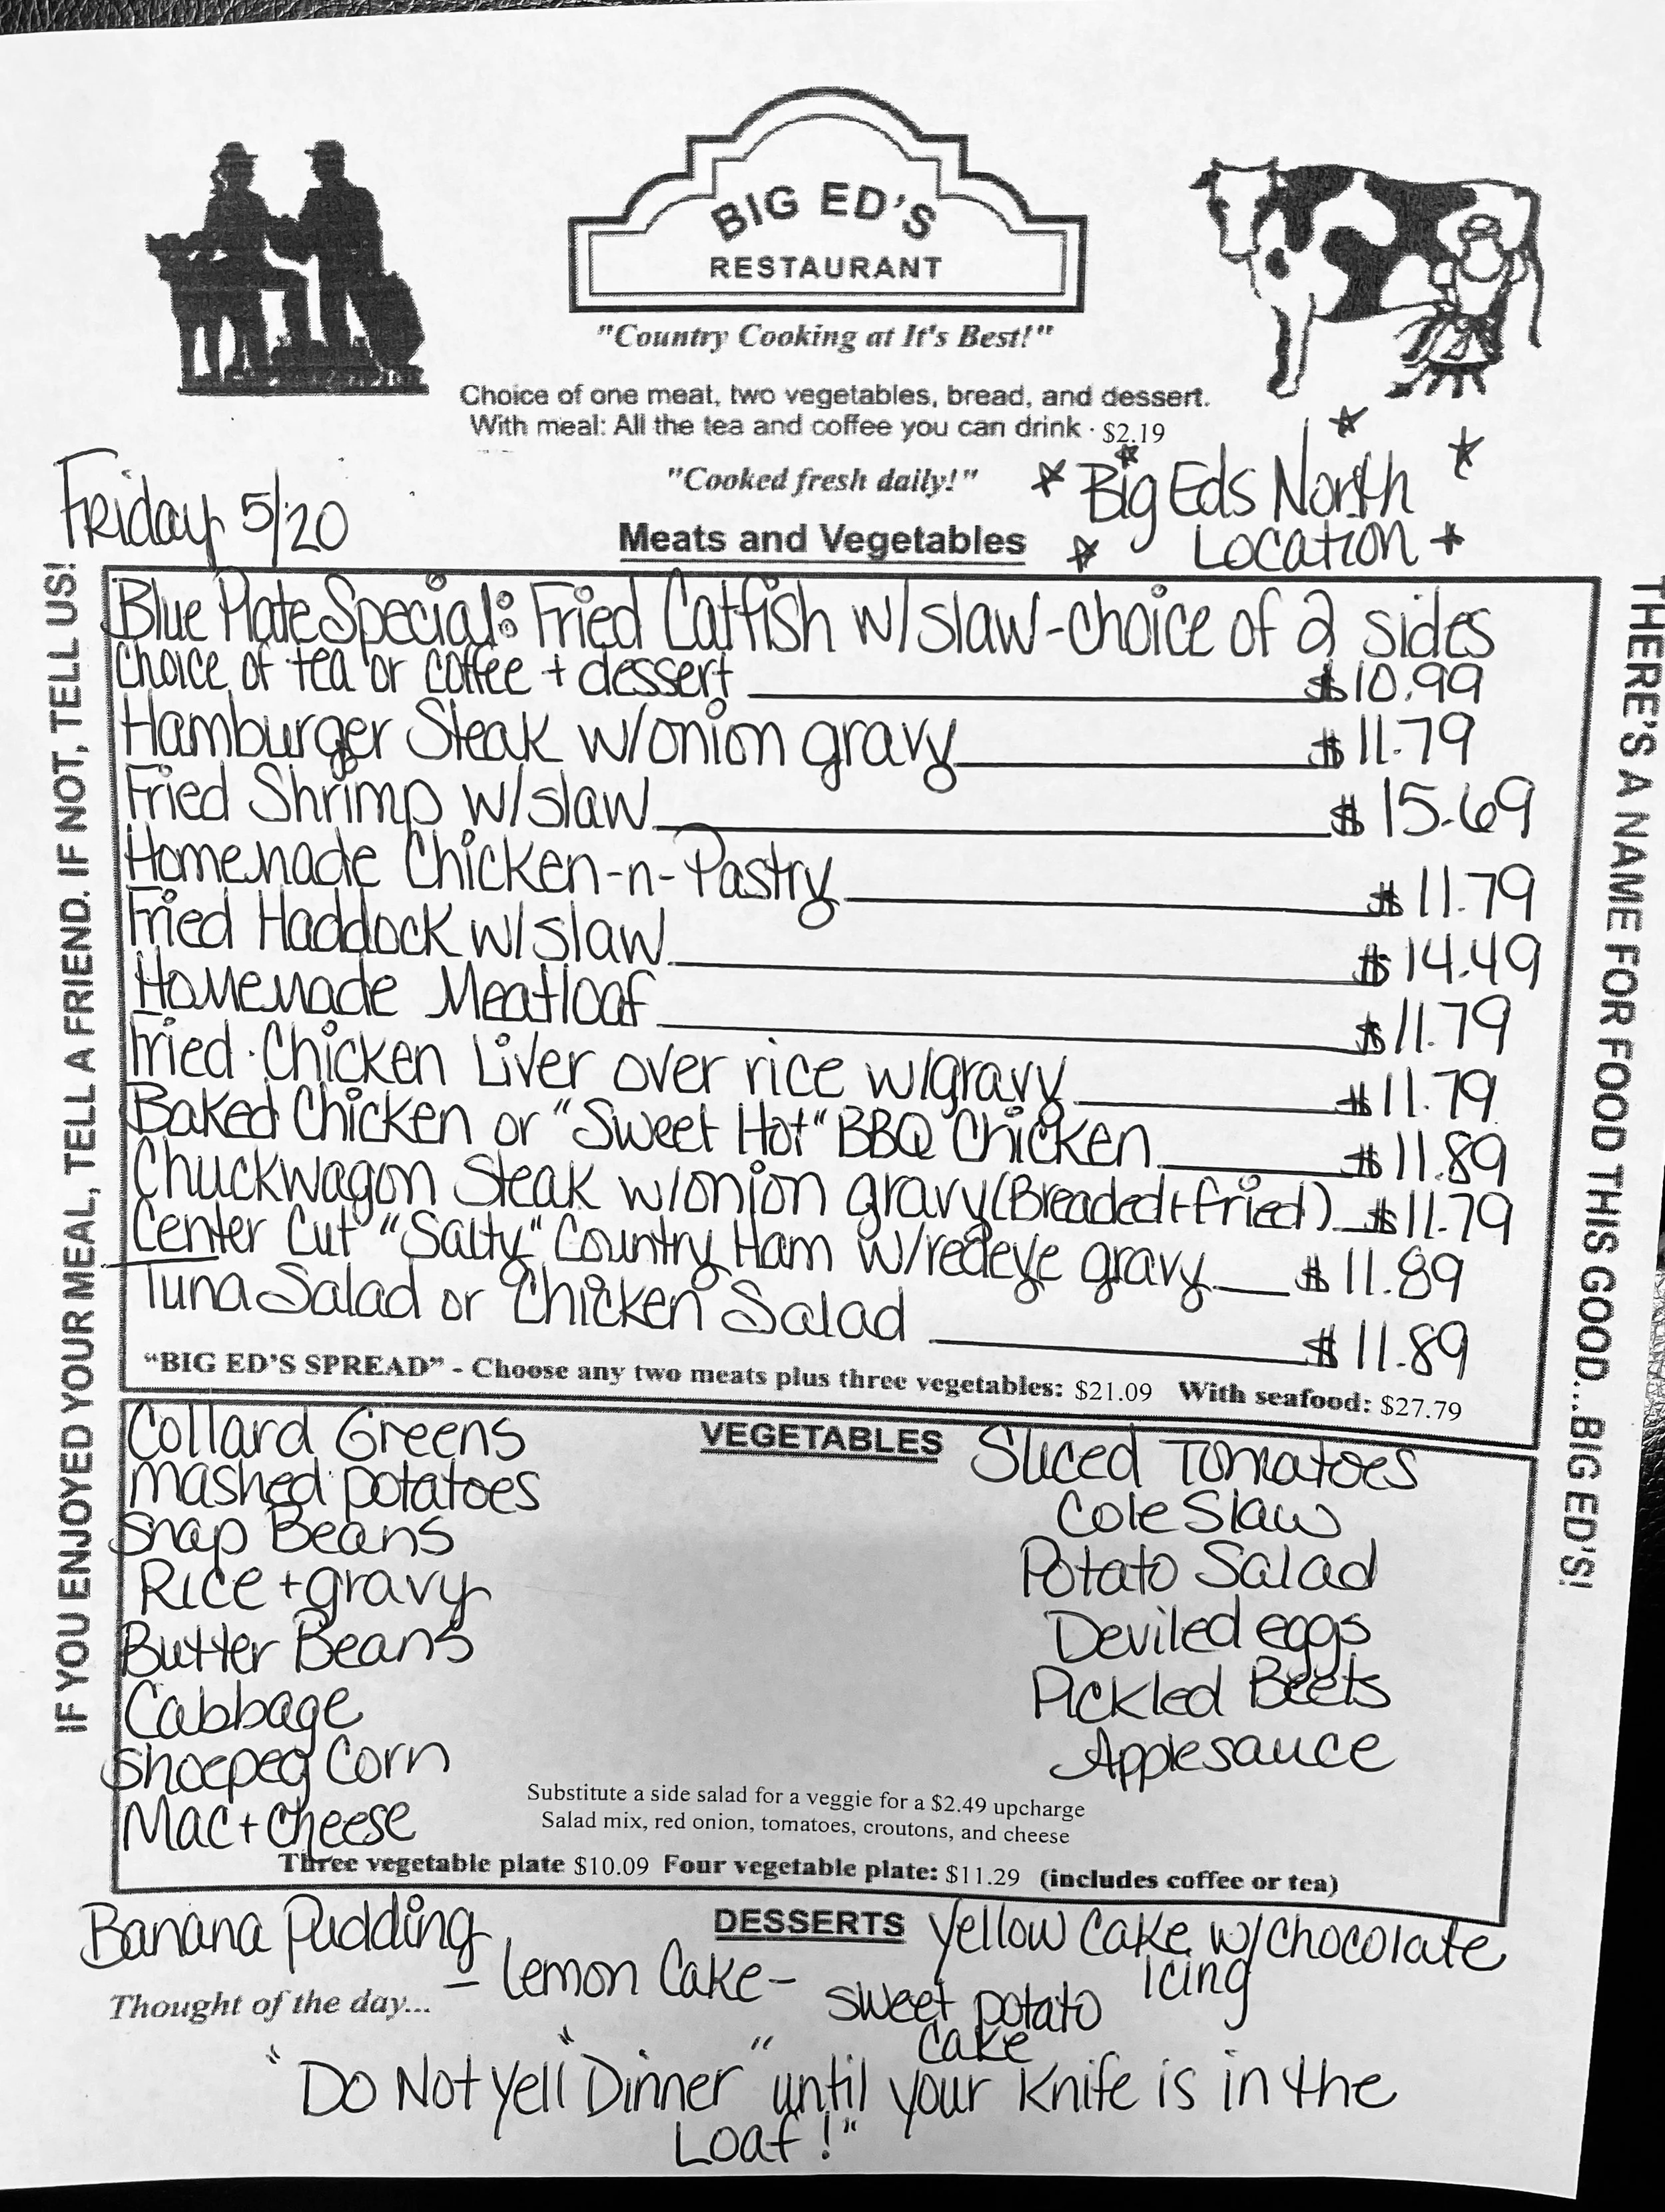 BIG ED'S
RESTAURANT
"Country Cooking at It's Best!"
Choice of one meat, two vegetables, bread, and dessert.
With meal: All the tea and coffee you can drink · $2.19
"Cooked fresh daily!"
Friday 5/20
Big Eds North
Location
Meats and Vegetables
Blue Plate Special: Fried Catfish w/slaw-choice of 2 sides
choice of tea or coffee + dessert $10.99
Hamburger Steak w/onion gravy $11.79
Fried Shrimp w/slaw $15.69
Homemade Chicken-n-Pastry $11.79
Fried Haddock w/slaw $14.49
Homemade Meatloaf $11.79
Fried Chicken Liver over rice w/gravy $11.79
Baked Chicken or "Sweet Hot" BBQ Chicken $11.89
Chuckwagon Steak w/onion gravy (Breaded+fried) $11.79
Center Cut "Salty" Country Ham w/redeye gravy $11.89
Tuna Salad or Chicken Salad $11.89
"BIG ED'S SPREAD" - Choose any two meats plus three vegetables: $21.09 With seafood: $27.79
VEGETABLES
Collard Greens
Mashed potatoes
Snap Beans
Rice + gravy
Butter Beans
Cabbage
Shoepeg Corn
Mac + Cheese
Sliced Tomatoes
Cole Slaw
Potato Salad
Deviled eggs
Pickled Beets
Applesauce
Substitute a side salad for a veggie for a $2.49 upcharge
Salad mix, red onion, tomatoes, croutons, and cheese
Three vegetable plate $10.09 Four vegetable plate: $11.29 (includes coffee or tea)
DESSERTS
Banana Pudding
- Lemon Cake -
Yellow Cake w/Chocolate
Icing
sweet potato
Cake
Thought of the day...
"Do Not yell "Dinner" until your Knife is in the
Loaf!"
IF YOU ENJOYED YOUR MEAL, TELL A FRIEND. IF NOT, TELL US!
THERE'S A NAME FOR FOOD THIS GOOD...BIG ED'S!